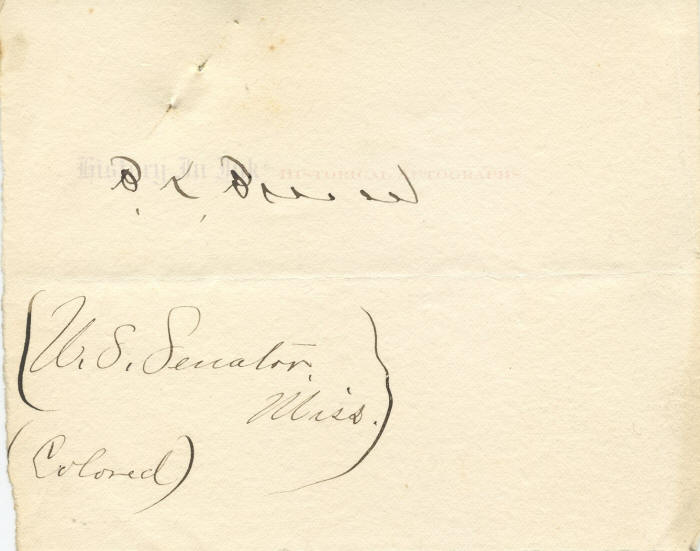 History In Ink® HISTORICAL AUTOGRAPHS
B. K. Bruce
(U. S. Senator,
Miss.)
(Colored)